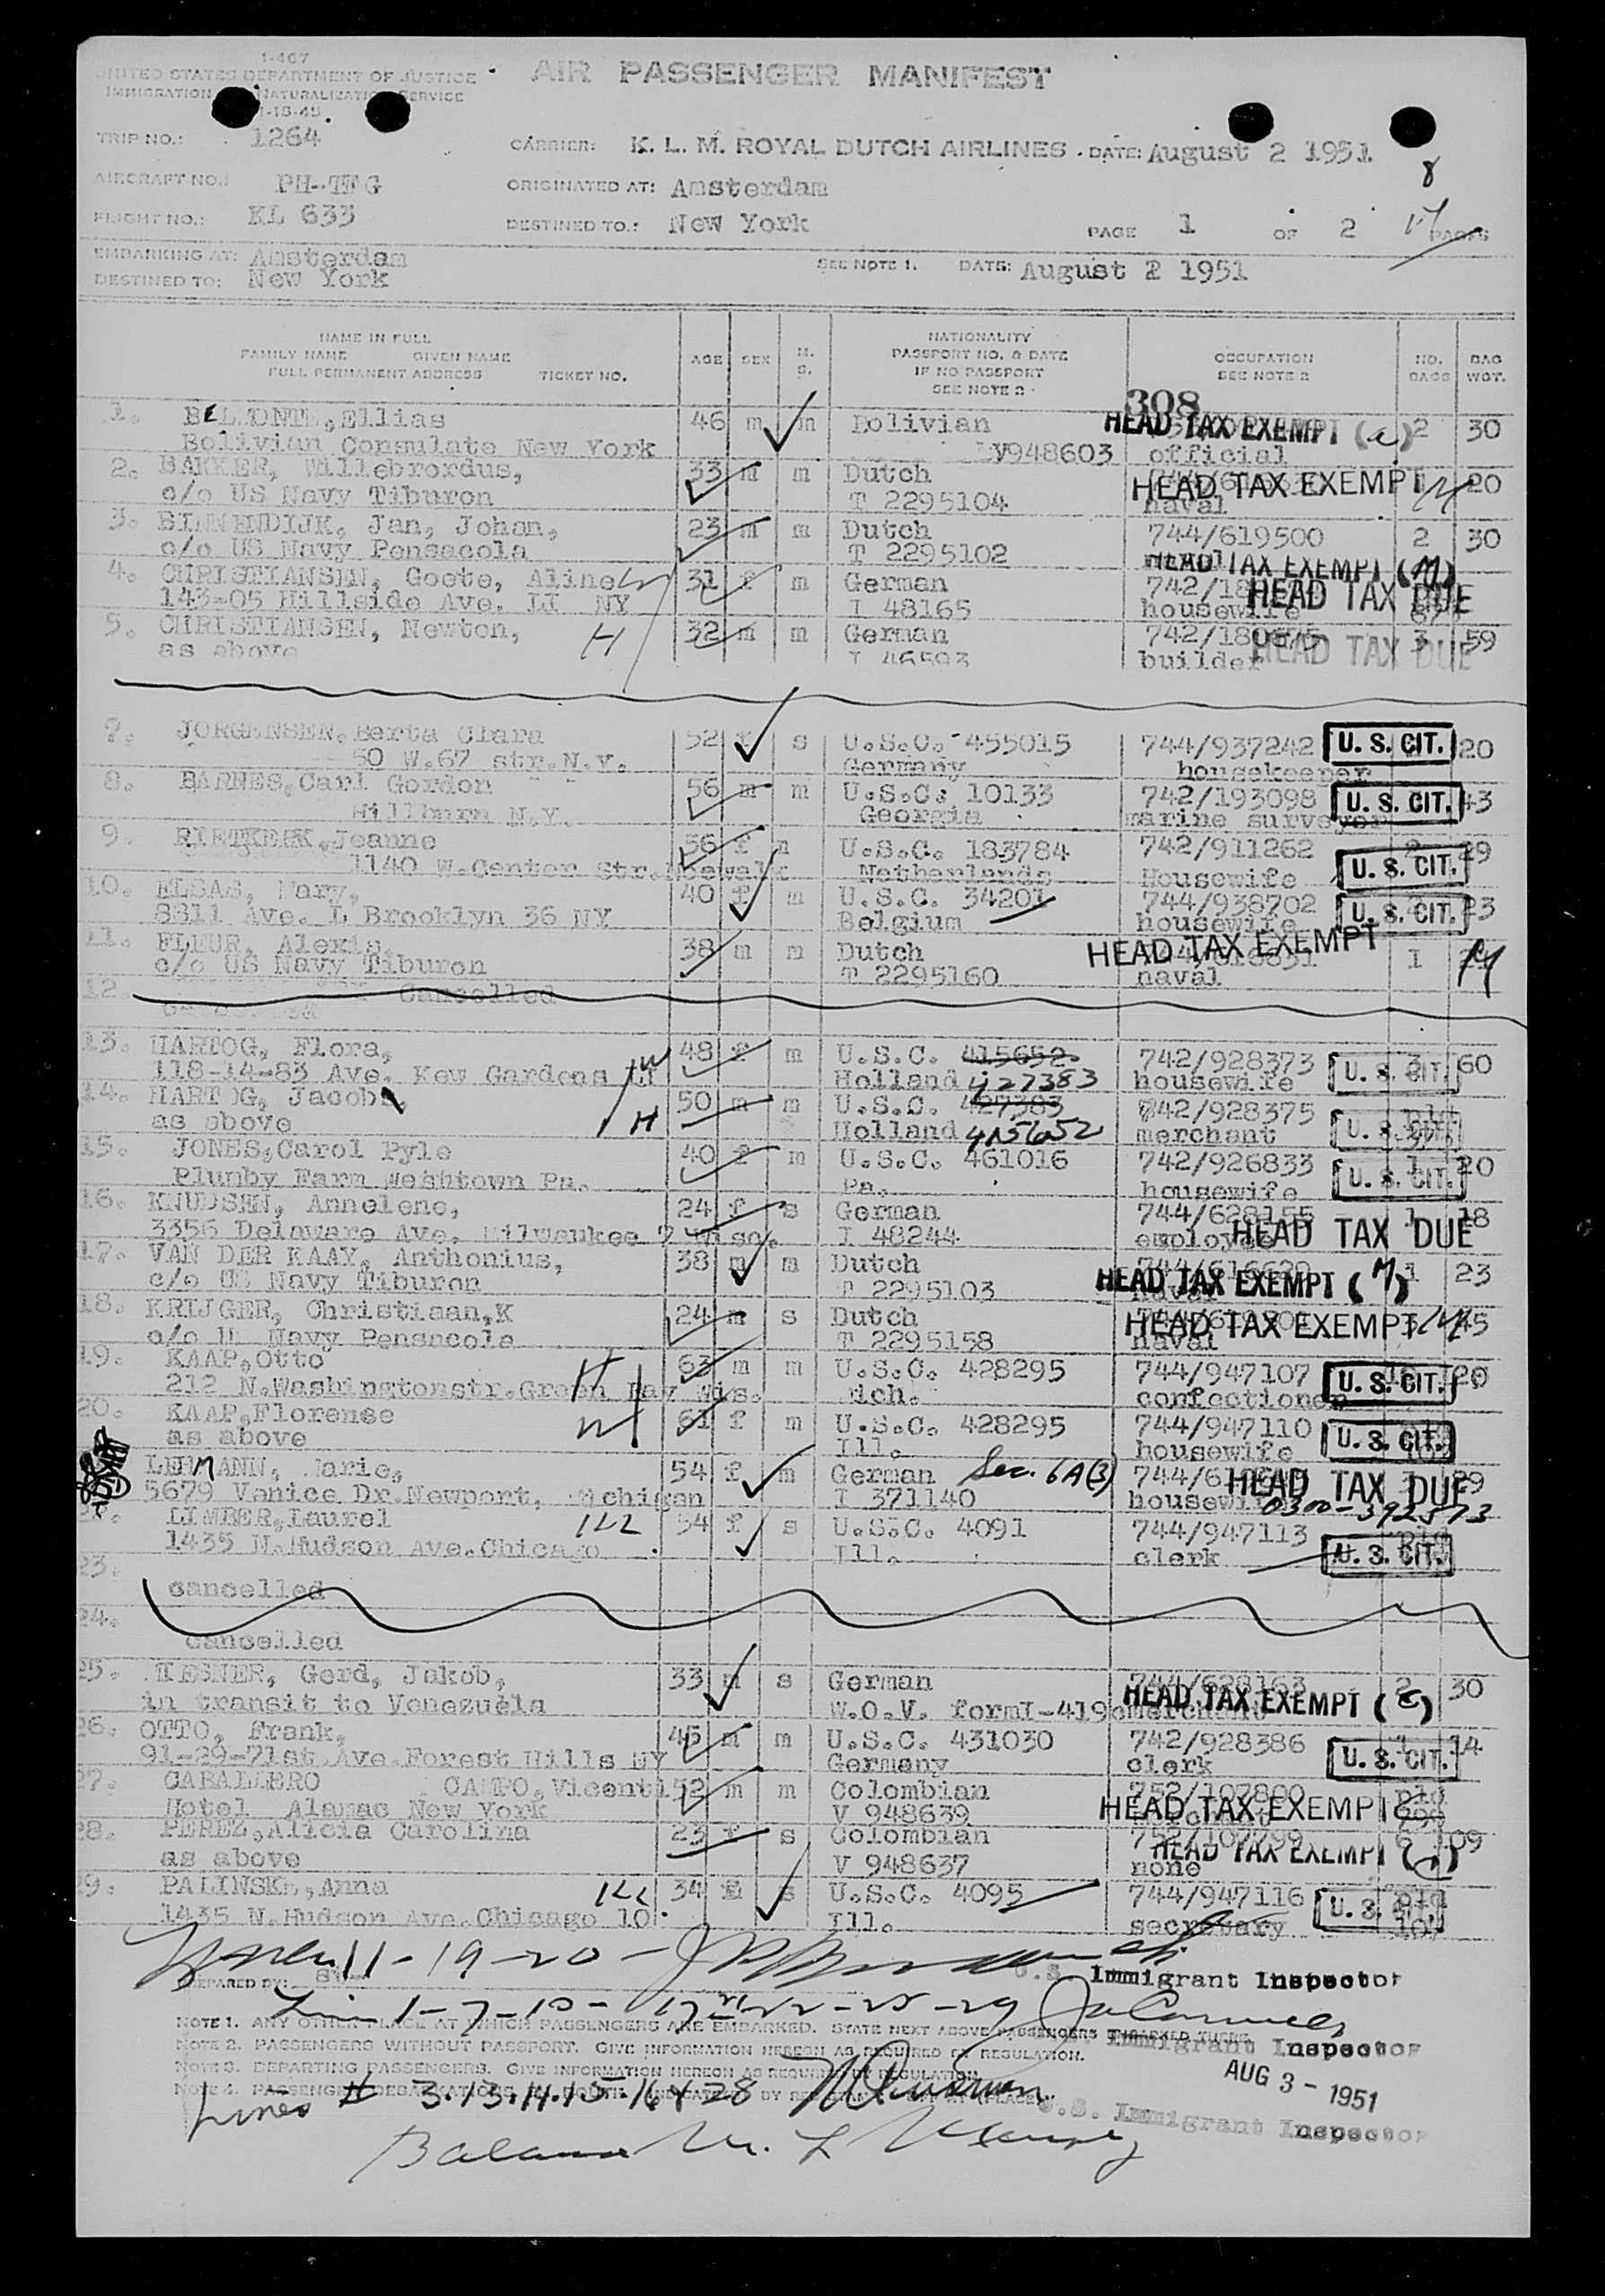 I-407
UNITED STATES DEPARTMENT OF JUSTICE
IMMIGRATION NATURALIZATION SERVICE
AIR PASSENGER MANIFEST
TRIP NO.: 1264
CARRIER: K. L. M. ROYAL DUTCH AIRLINES. DATE: August 2 1951
8
AIRCRAFT NO.: PH-TFG
ORIGINATED AT: Amsterdam
FLIGHT NO.: KL 633
DESTINED TO.: New York
PAGE 1 OF 2 PAGES
17
EMBARKING AT: Amsterdam
SEE NOTE 1. DATE: August 2 1951
DESTINED TO: New York
NAME IN FULL
FAMILY NAME GIVEN NAME
FULL PERMANENT ADDRESS TICKET NO.
AGE SEX M. S.
NATIONALITY
PASSPORT NO. & DATE
IF NO PASSPORT
SEE NOTE 2
OCCUPATION
SEE NOTE 2
NO. BAGS
BAG WGT.
308
1. BELMONTE, Ellias 46 m m Bolivian HEAD TAX EXEMPT 2 30
Bolivian Consulate New York y948603 official
2. BAKKER, Willebrordus, 33 m m Dutch HEAD TAX EXEMPT 20
c/o US Navy Tiburon T 2295104 naval
3. BINNENDIJK, Jan, Johan, 23 m m Dutch 744/619500 2 30
c/o US Navy Pensacola T 2295102 HEAD TAX EXEMPT (M)
4. CHRISTIANSEN, Goete, Aline W 31 f m German 742/18 HEAD TAX DUE
143-05 Hillside Ave. LI NY I 48165 housewife
5. CHRISTIANSEN, Newton, H 32 m m German 742/180675 3 59
as above I 46593 builder HEAD TAX DUE
7. JORGENSEN, Berta Clara 52 f s U.S.C. 455015 744/937242 U. S. CIT. 20
50 W.67 str.N.Y. Germany housekeeper
8. BARNES, Carl Gordon 56 m m U.S.C. 10133 742/193098 U. S. CIT. 43
Hillburn N.Y. Georgia marine surveyor
9. RIETKERK, Jeanne 56 f m U.S.C. 183784 742/911262 2 29
1140 W.Center Str. Netherlands Housewife U. S. CIT.
10. ELSAS, Mary, 40 f m U.S.C. 34201 744/938702 23
8811 Ave. L Brooklyn 36 NY Belgium housewife U. S. CIT.
11. FLEUR, Alexis, 38 m m Dutch HEAD TAX EXEMPT 1 M
c/o US Navy Tiburon T 2295160 naval
12. Cancelled
13. HARTOG, Flora, W 48 f m U.S.C. 415652 742/928373 3 60
118-14-83 Ave. Kew Gardens LI Holland 427383 housewife U. S. CIT.
14. HARTOG, Jacob, 50 m m U.S.C. 427383 742/928375 pld
as above H Holland 415652 merchant U. S.
15. JONES, Carol Pyle 40 f m U.S.C. 461016 742/926833 1 20
Plumby Farm Weshtown Pa. Pa. housewife U. S. CIT.
16. KNUDSEN, Annelene, 24 f s German 744/628155 1 18
3356 Delaware Ave. Milwaukee 7 Wisc. I 48244 employee HEAD TAX DUE
17. VAN DER KAAY, Anthonius, 38 m m Dutch 1 23
c/o US Navy Tiburon T 2295103 HEAD TAX EXEMPT (M)
18. KRIJGER, Christiaan, K 24 m s Dutch HEAD TAX EXEMPT 45
c/o U Navy Pensacola T 2295158 naval
19. KAAP, Otto H 63 m m U.S.C. 428295 744/947107 20
212 N.Washingtonstr.Green Bay Wis. Mich. confectioner U. S. CIT.
20. KAAP, Florense W 61 f m U.S.C. 428295 744/947110
as above Ill. housewife U. S. CIT.
LEHMANN, Marie, 54 f m German Sec. 6A(3) HEAD TAX DUE 29
5679 Venice Dr.Newport, Michigan I 371140 housewife 0300-392573
LIMBER, Laurel 54 f s U.S.C. 4091 744/947113 pld
1435 N.Hudson Ave.Chicago Ill. clerk U. S. CIT.
23. cancelled
24. cancelled
25. TESNER, Gerd, Jakob, 33 m s German 744/628163 2 30
in transit to Venezuela W.O.V. formI-419 HEAD TAX EXEMPT
26. OTTO, Frank, 45 m m U.S.C. 431030 742/928386 14
91-29-71st Ave Forest Hills NY Germany clerk U. S. CIT.
27. CABALLERO CAMPO, Vicenti 52 m m Colombian 752/107800 pld
Hotel Alamac New York V 948639 HEAD TAX EXEMPT
28. PEREZ, Alicia Carolina 23 f s Colombian 752/107799 6 109
as above V 948637 none HEAD TAX EXEMPT
29. PALINSKI, Anna 34 f s U.S.C. 4095 744/947116 pld
1435 N.Hudson Ave.Chicago 10. Ill. secretary U. S.
11-19-20-
PREPARED BY:
U.S. Immigrant Inspector
NOTE 1. ANY OTHER PLACE AT WHICH PASSENGERS ARE EMBARKED. STATE NEXT ABOVE PASSENGERS EMBARKED THERE
Immigrant Inspector
NOTE 2. PASSENGERS WITHOUT PASSPORT. GIVE INFORMATION HEREON AS REQUIRED BY REGULATION.
NOTE 3. DEPARTING PASSENGERS. GIVE INFORMATION HEREON AS REQUIRED BY REGULATION.
AUG 3 - 1951
Lines # 3.13.14.15-16 & 28
U.S. Immigrant Inspector
Balance